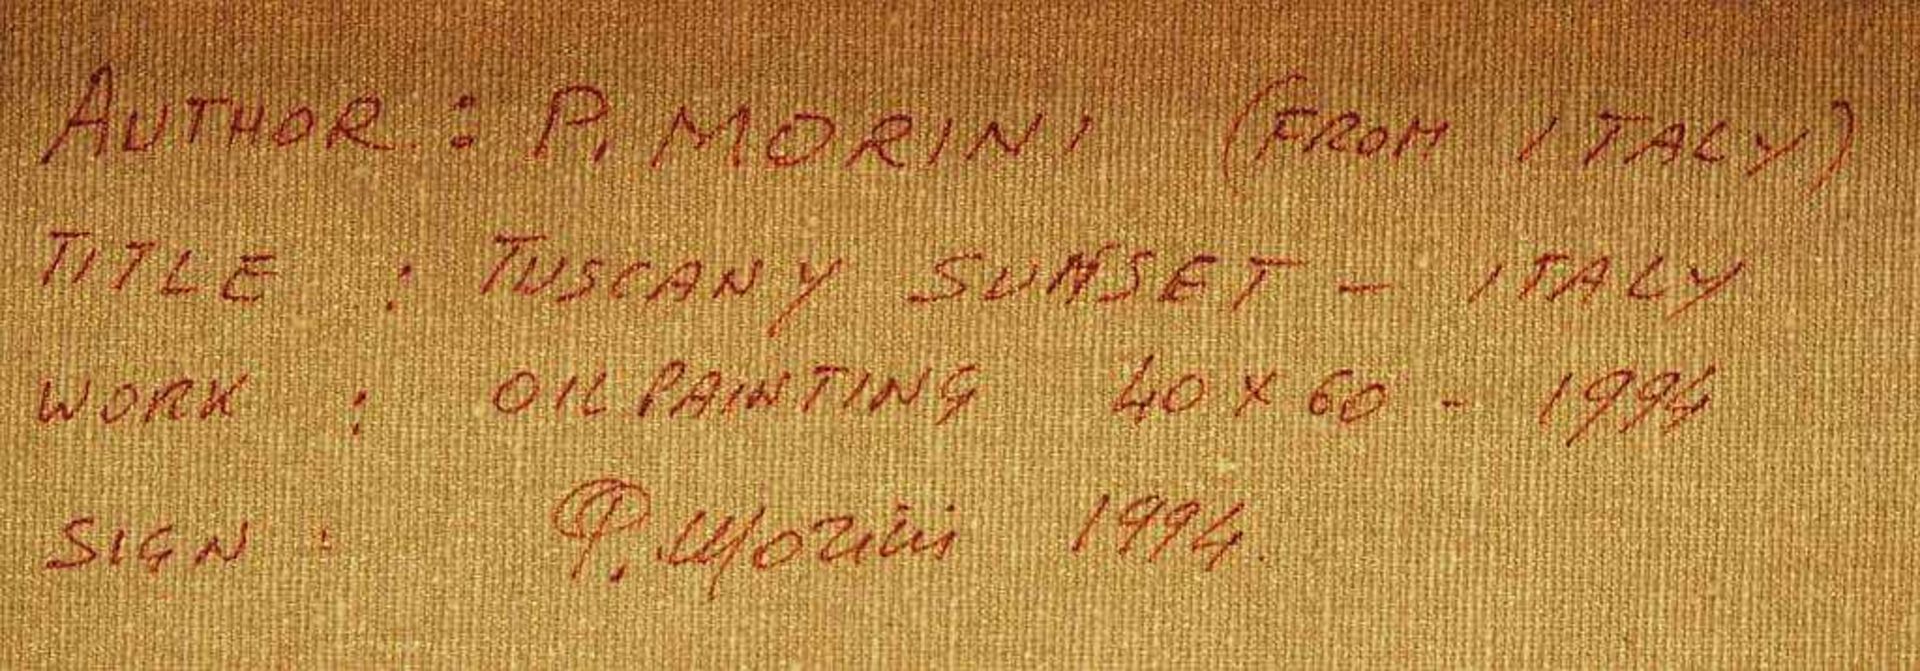 AUTHOR : P. MORINI (FROM ITALY)
TITLE : TUSCANY SUNSET - ITALY
WORK : OIL PAINTING 40 X 60 - 1994
SIGN : P. Morini 1994.